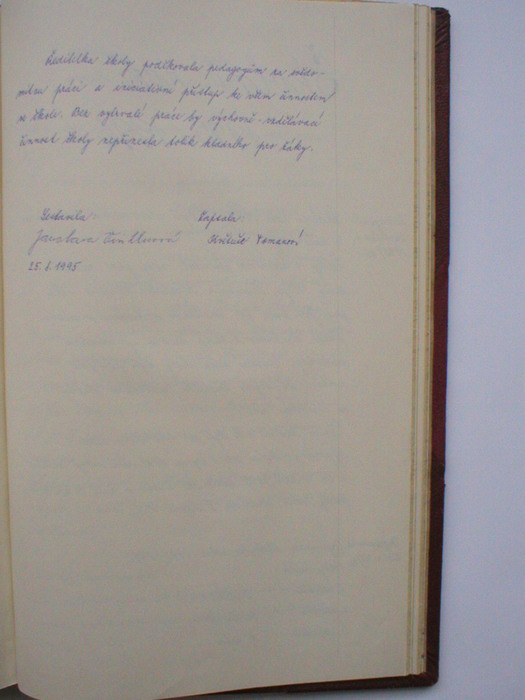 Ředitelka školy poděkovala pedagogům za svědo-
mitou práci a iniciativní přístup ke všem činnostem
ve škole. Bez vytrvalé práce by výchovně-vzdělávací
činnost školy nepřinesla tolik kladného pro žáky.
Sestavila: Zapsala:
Jaroslava
25. 6. 1995